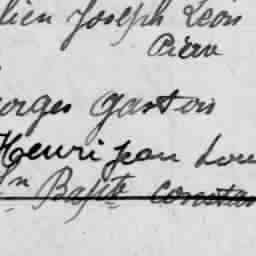 lien Joseph Léon
Pierre
orges Gaston
Henri Jean Lou
Jn Bapte Constan